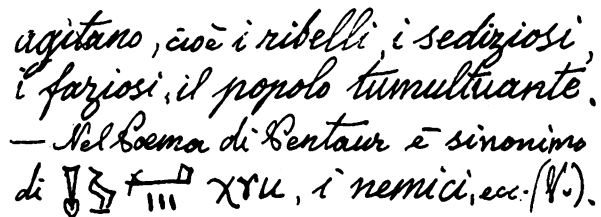 agitano, cioè i ribelli, i sediziosi,
i faziosi, il popolo tumultuante.
— Nel Poema di Pentaur è sinonimo
di χru, i nemici, ecc. (V.).